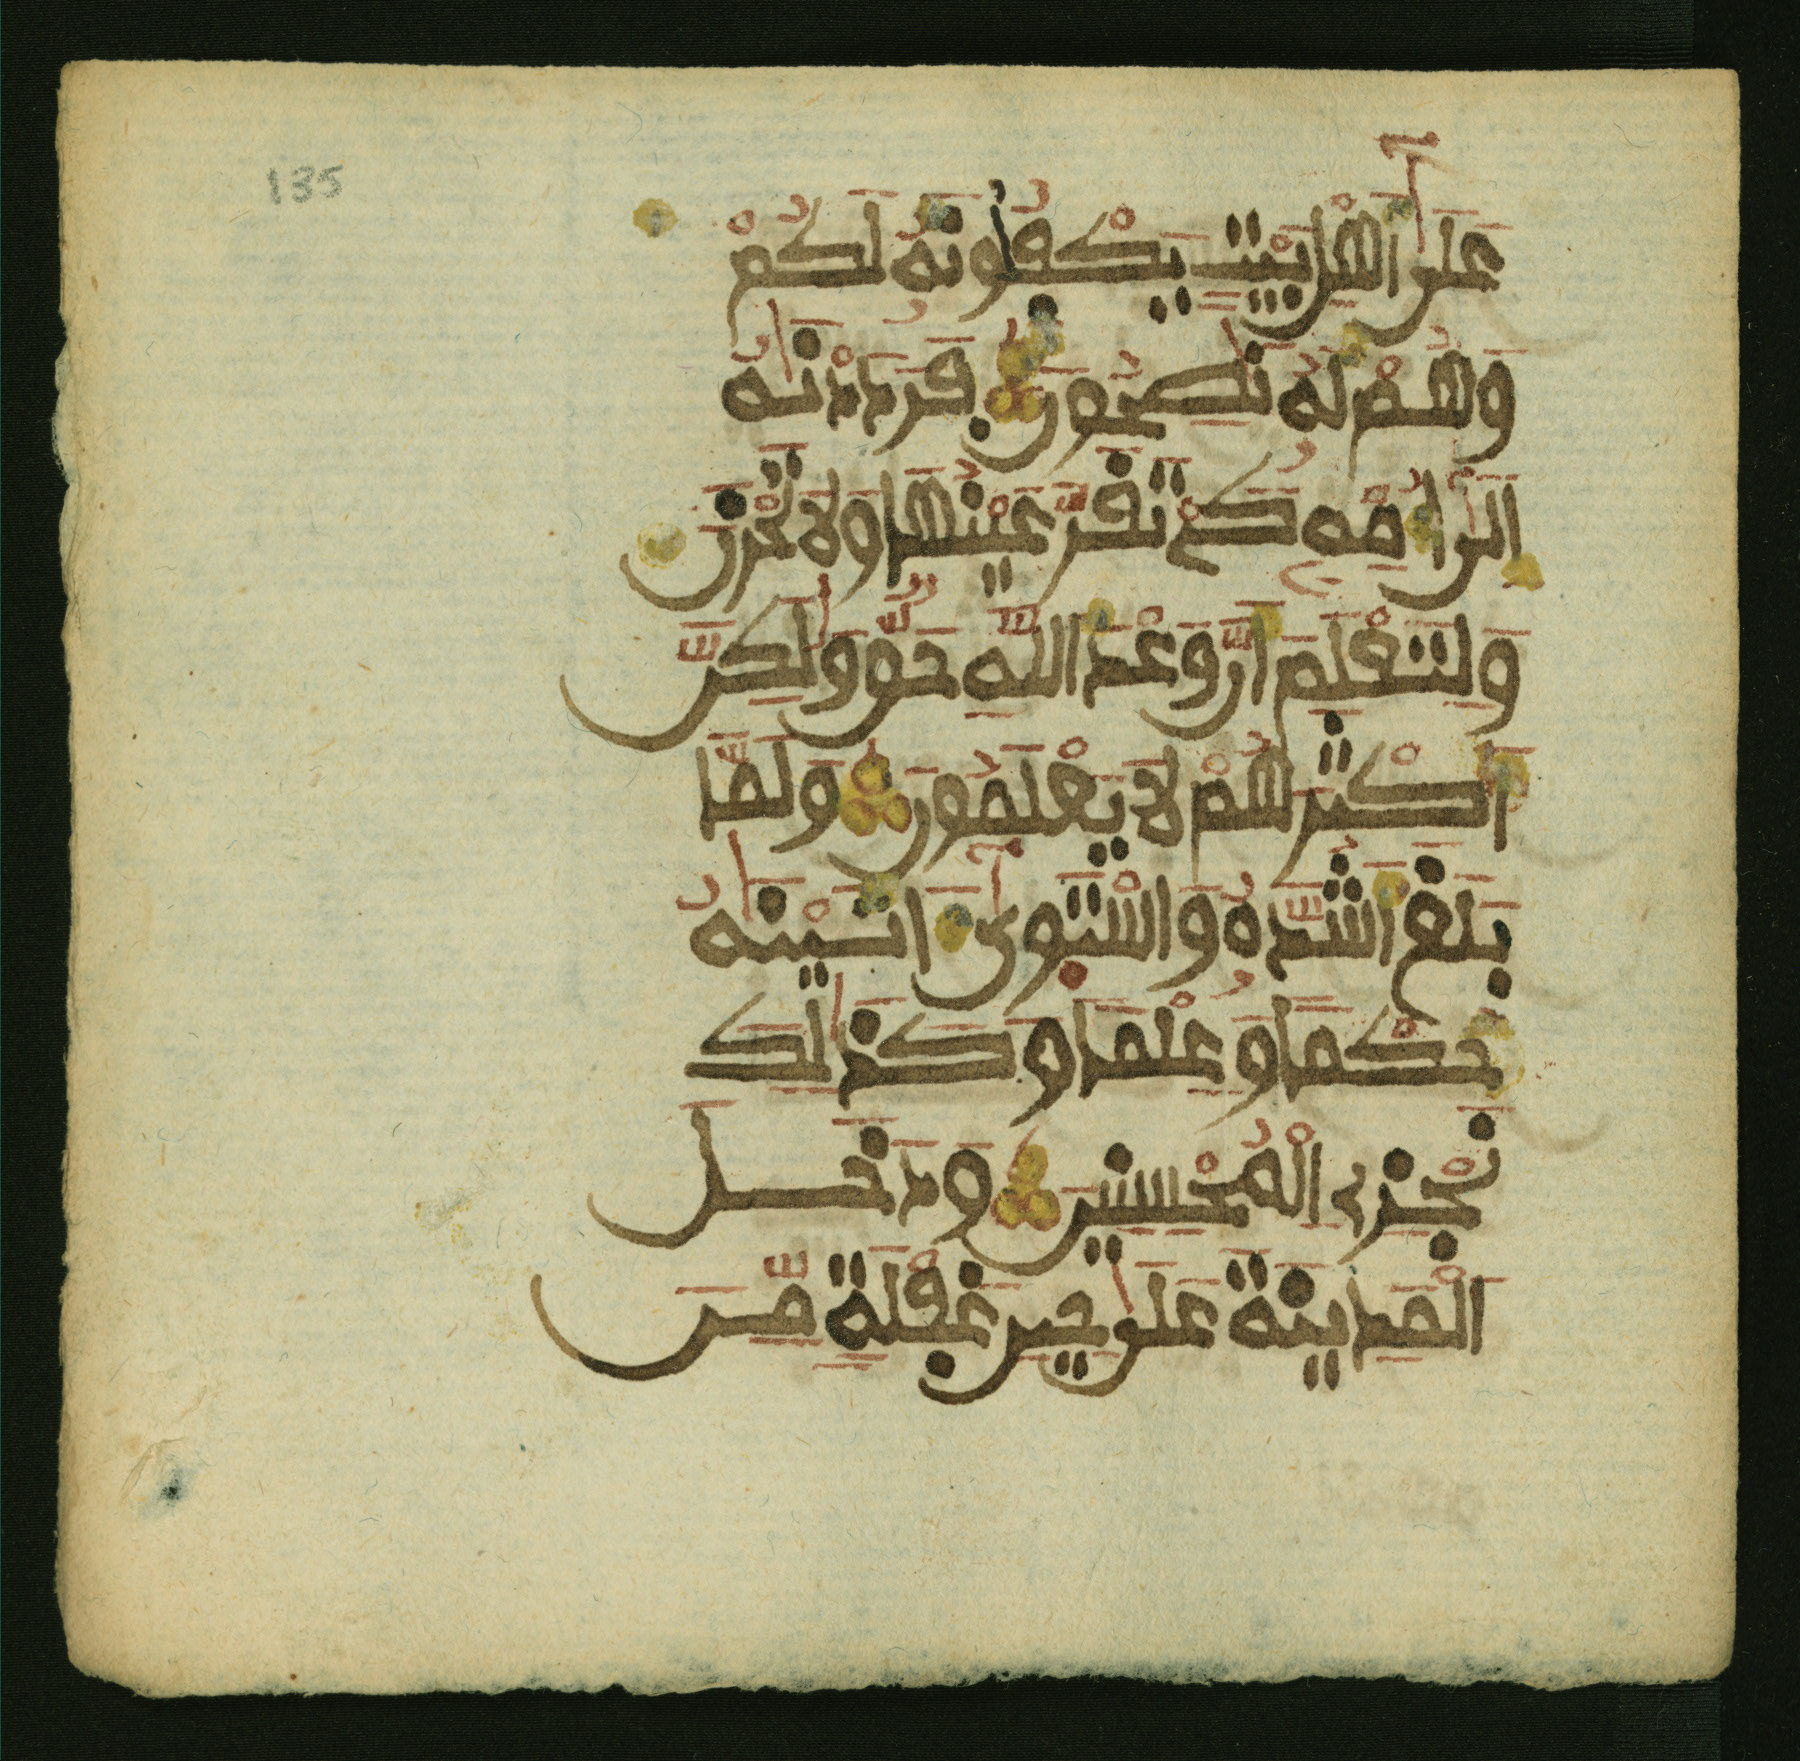 135
عَلَىٰٓ أَهْلِ بَيْتٍ يَكْفُلُونَهُۥ لَكُمْ
وَهُمْ لَهُۥ نَٰصِحُونَ فَرَدَدْنَٰهُ
إِلَىٰٓ أُمِّهِۦ كَيْ تَقَرَّ عَيْنُهَا وَلَا تَحْزَنَ
وَلِتَعْلَمَ أَنَّ وَعْدَ اللَّهِ حَقٌّ وَلَٰكِنَّ
أَكْثَرَهُمْ لَا يَعْلَمُونَ وَلَمَّا
بَلَغَ أَشُدَّهُۥ وَاسْتَوَىٰٓ ءَاتَيْنَٰهُ
حُكْمًا وَعِلْمًا وَكَذَٰلِكَ
نَجْزِي الْمُحْسِنِينَ وَدَخَلَ
الْمَدِينَةَ عَلَىٰ حِينِ غَفْلَةٍ مِّنْ